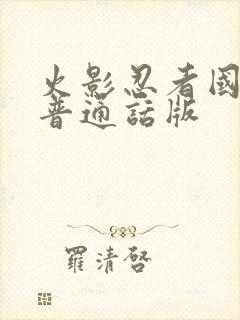 火影忍者國
普通話版
羅清啓